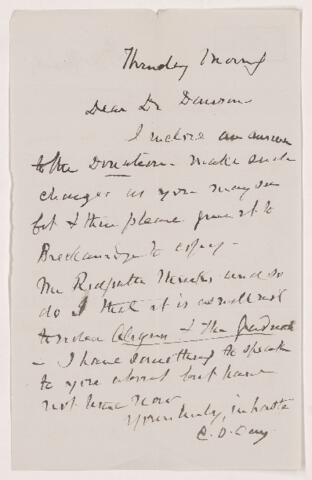 Thursday Morng
Dear Dr Dawson
I inclose an answer
to the Donation - make such
changes as you may see
fit & then please give it to
Breckanridge to copy -
Mr Redpath thinks and so
do I that it is as well not
to
- I have something to speak
to you about but have
not time now
Yours truly, in haste
C. D. Day